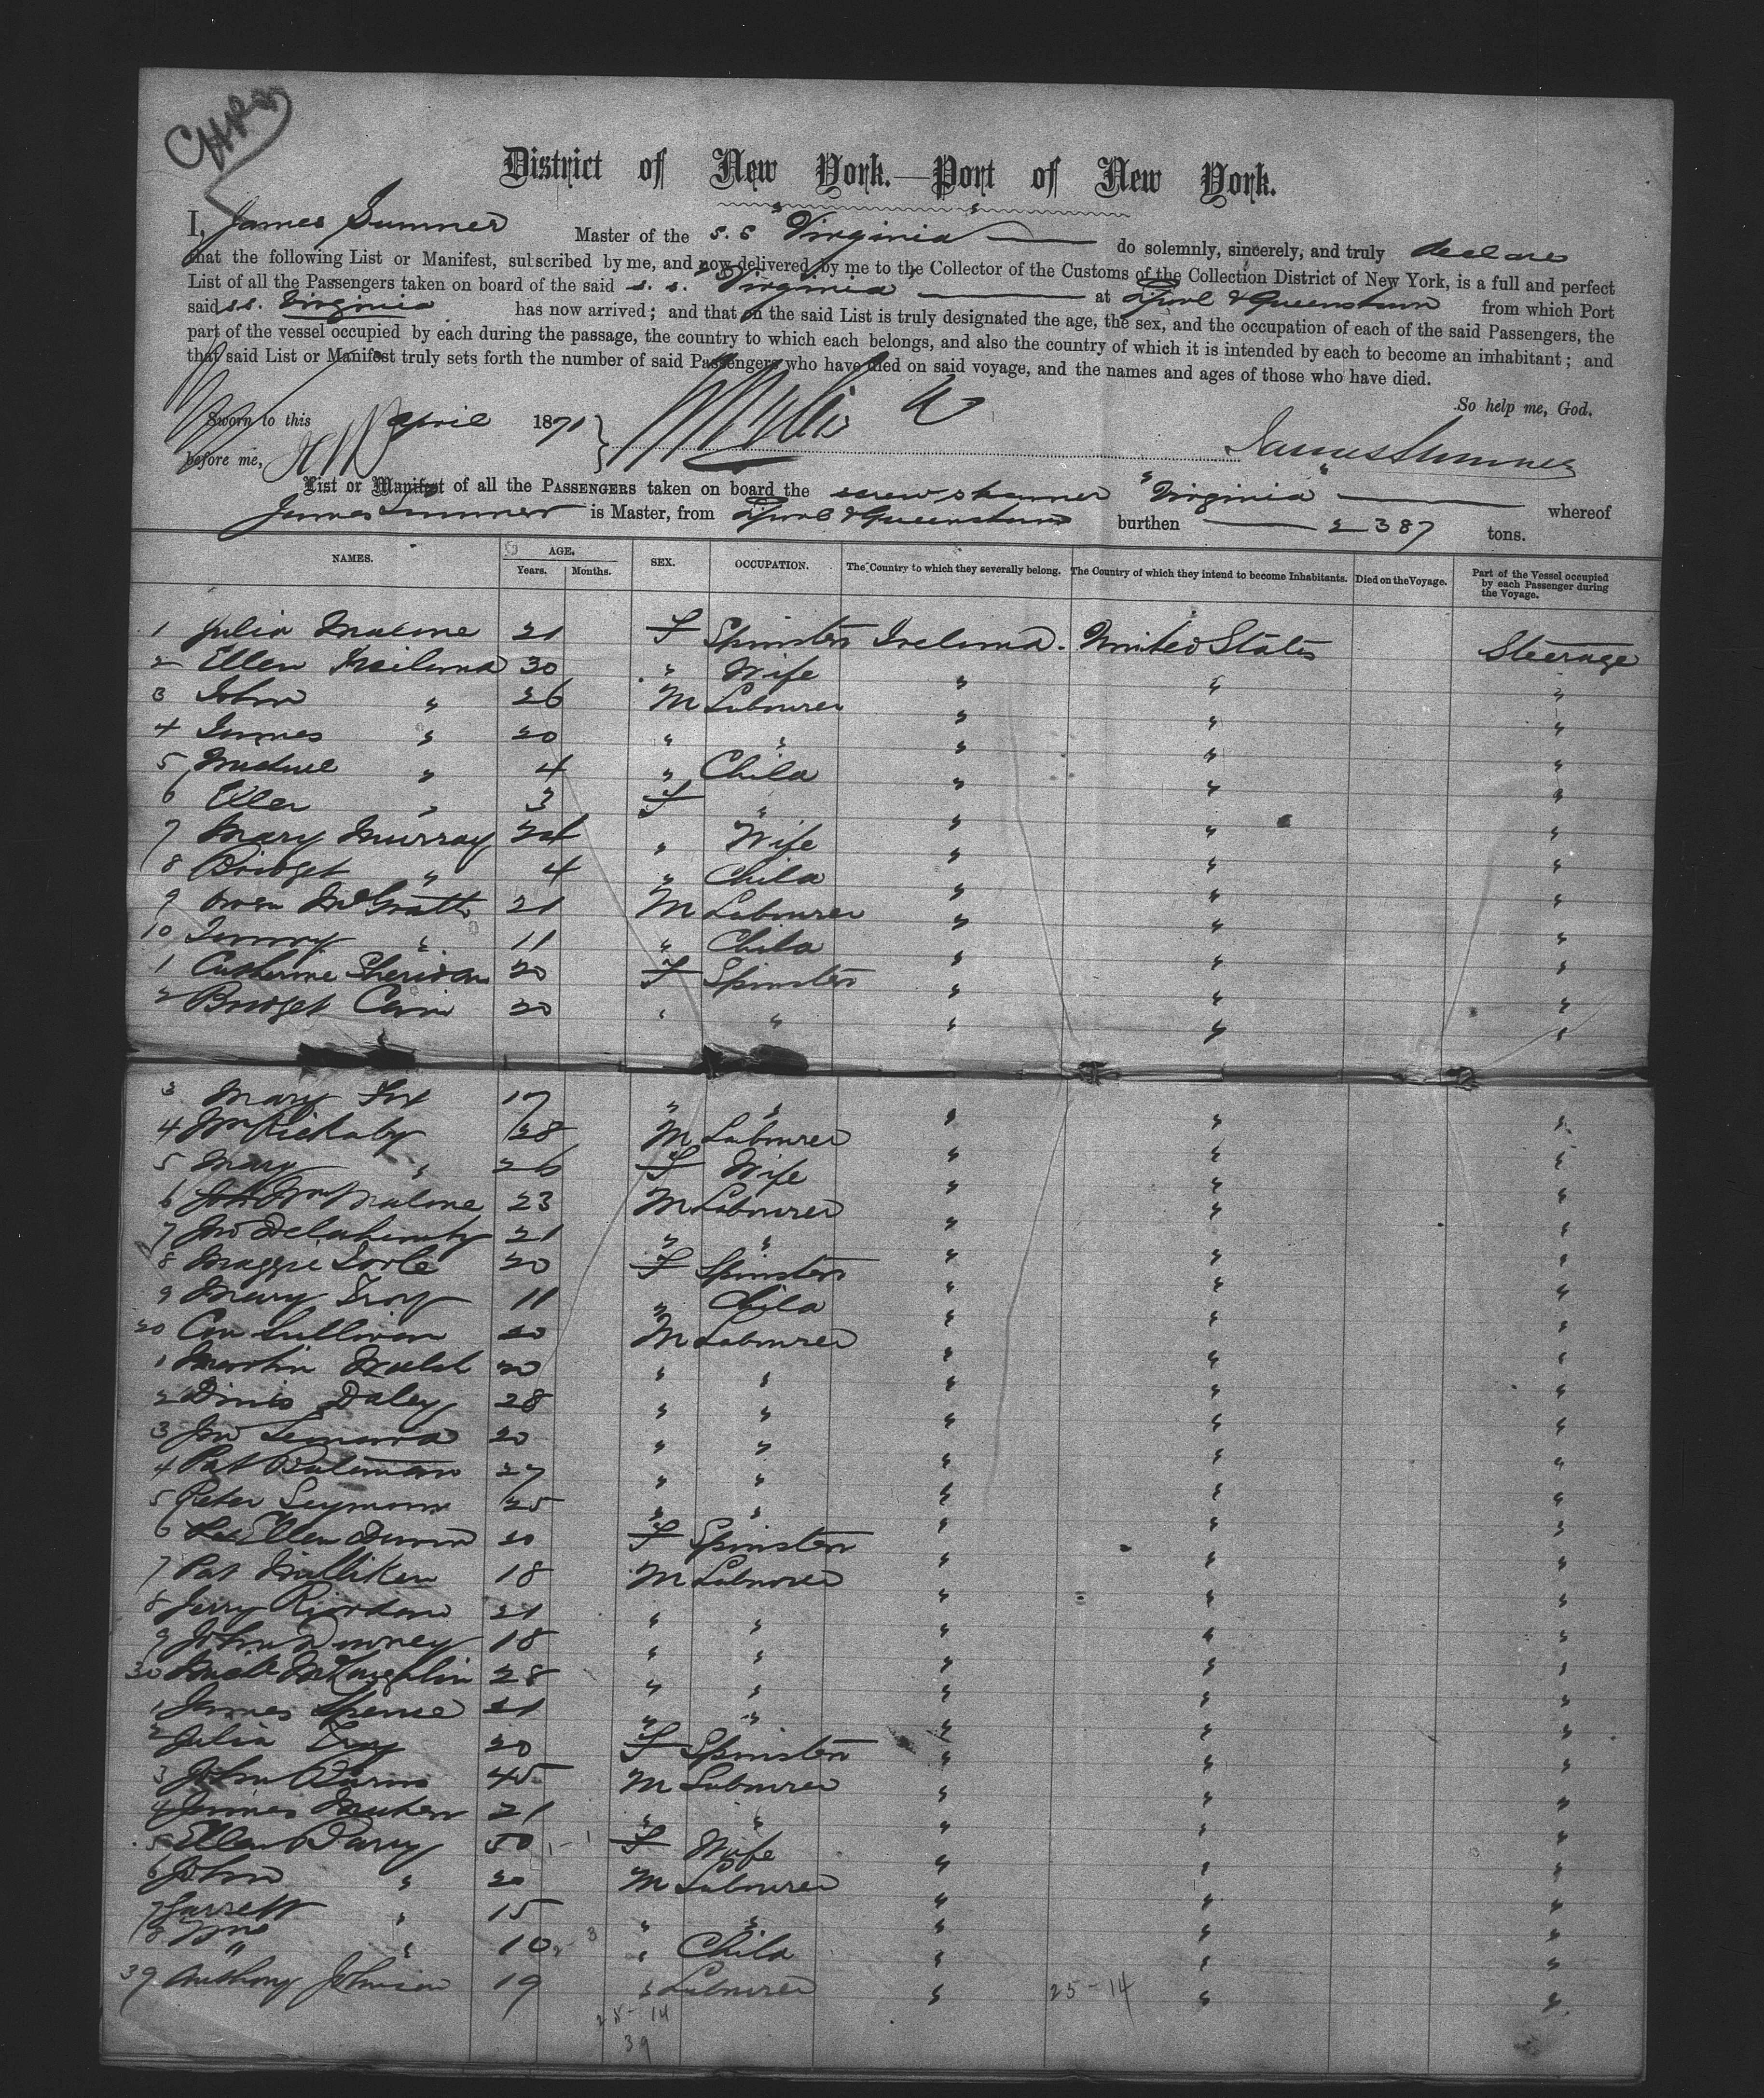 District of New York.—Port of New York.
I, James Sumner Master of the S.S "Virginia" do solemnly, sincerely, and truly declare
that the following List or Manifest, subscribed by me, and now delivered by me to the Collector of the Customs of the Collection District of New York, is a full and perfect
List of all the Passengers taken on board of the said s.s. Virginia at L'pool & Queenstown from which Port
said s.s. Virginia has now arrived; and that on the said List is truly designated the age, the sex, and the occupation of each of the said Passengers, the
part of the vessel occupied by each during the passage, the country to which each belongs, and also the country of which it is intended by each to become an inhabitant; and
that said List or Manifest truly sets forth the number of said Passengers who have died on said voyage, and the names and ages of those who have died.
So help me, God.
Sworn to this April 1871
before me, James Sumner
List or Manifest of all the PASSENGERS taken on board the screw steamer "Virginia" whereof
James Sumner is Master, from L'pool & Queenstown burthen 2387 tons.
NAMES. AGE. Years. Months. SEX. OCCUPATION. The Country to which they severally belong. The Country of which they intend to become Inhabitants. Died on the Voyage. Part of the Vessel occupied by each Passenger during the Voyage.
1 Julia Malone 21 F Spinster Ireland. United States Steerage
2 Ellen 30 " Wife " " "
3 John " 26 M Labourer " " "
4 James " 20 " " " " "
5 Michael " 4 " Child " " "
6 Ellen " 3 F " " " "
7 Mary Murray 24 " Wife " " "
8 Bridget " 4 " Child " " "
9 Owen McGrath 21 M Labourer " " "
10 " 11 " Child " " "
1 Catherine Sheridan 20 F Spinster " " "
2 Bridget Cain 20 " " " " "
3 Mary Fox 17 " " " " "
4 Wm Rickaby 28 M Labourer " " "
5 Mary " 26 F Wife " " "
6 Wm Malone 23 M Labourer " " "
7 Jno Delahunty 21 " " " " "
8 Maggie Toole 20 F Spinster " " "
9 Mary Troy 11 " Child " " "
20 Con Sullivan 20 M Labourer " " "
1 Martin Walsh 20 " " " " "
2 Dinis Daley 28 " " " " "
3 Jno Lenard 20 " " " " "
4 Pat Bateman 27 " " " " "
5 Peter Seymour 25 " " " " "
6 Ellen Dunn 20 F Spinster " " "
7 Pat Milliken 18 M Labourer " " "
8 Jerry Riordan 21 " " " " "
9 John Downey 18 " " " " "
30 McLaughlin 28 " " " " "
1 James Spence 21 " " " " "
2 Julia Troy 20 F Spinster " " "
3 John Burns 45 M Labourer " " "
4 James 21 " " " " "
5 Ellen Barry 50 F Wife " " "
6 John " 20 M Labourer " " "
7 Garrett " 15 " " " " "
8 Wm " 10 " Child " " "
39 Anthony Johnson 19 " Labourer " " "
25-14
25-14
39